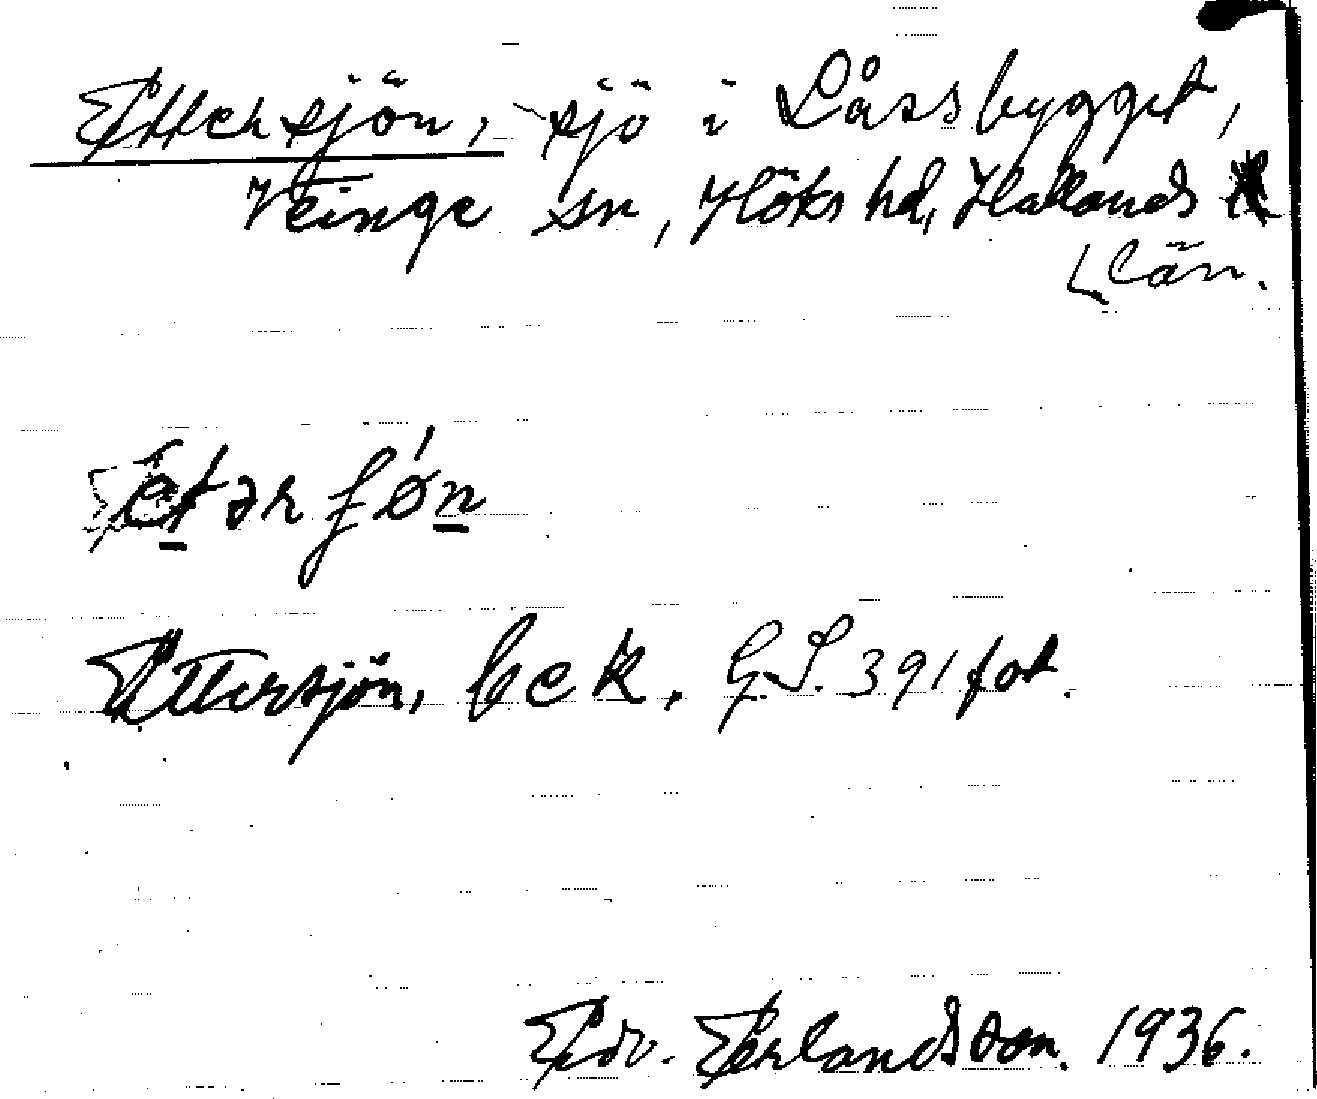 Ettersjön, sjö i Låssbygget,
Veinge sn, Höks hd, Hallands
län.
etər ʃøn
Ettersjön, bek. GS. 391 fot.
Edv. Erlandsson. 1936.